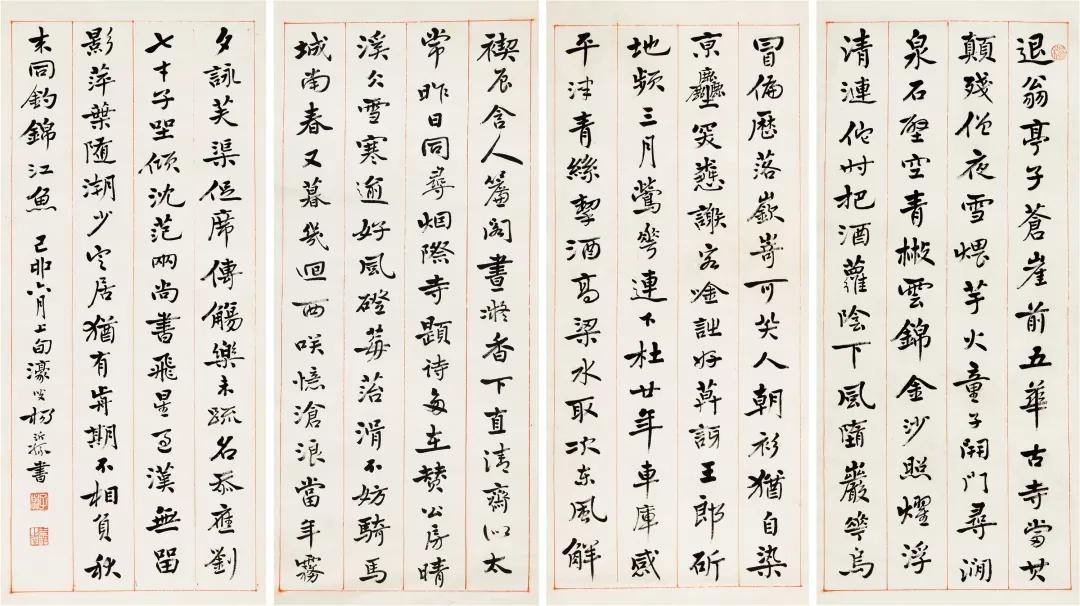 退翁亭子蒼崖前五華古寺當其
顛殘僧夜雪煨芋火童子開門尋澗
泉石壁空青椒雲錦金沙照燿浮
清漣他時把酒蘿陰下風隋巖花烏
冒偏歷落嶔嵜可笑人朝衫猶自染
京塵謝客唫詩好莫訝王郎斫
地頻三月鶯花連下杜廿年車庫感
平津青絲挈酒高梁水取次東風解
禊辰舍人簾閣晝凝香下直清齋似太
常昨日同尋烟際寺題詩多在贊公房晴
溪雪寒逾好風磴莓苔滑不妨騎馬
城南春又暮幾迴西笑憶滄浪當年霧
夕詠芙渠促席傳觴樂未疏名忝應劉
七才子坐傾沈范兩尚書飛星過漢無留
影萍葉隨湖少定居猶有歲期不相負秋
來同釣錦江魚 己卯六月上旬濠叟楊沂孫書